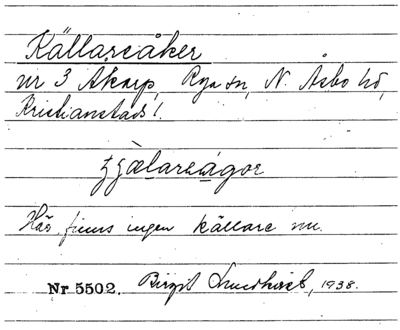 Källarsåker
nr 3 Åkarp, Rya sn, N. Åsbo hd,
Kristianstads l.
Här finns ingen källare nu.
Nr 5502. Birgit 1938.